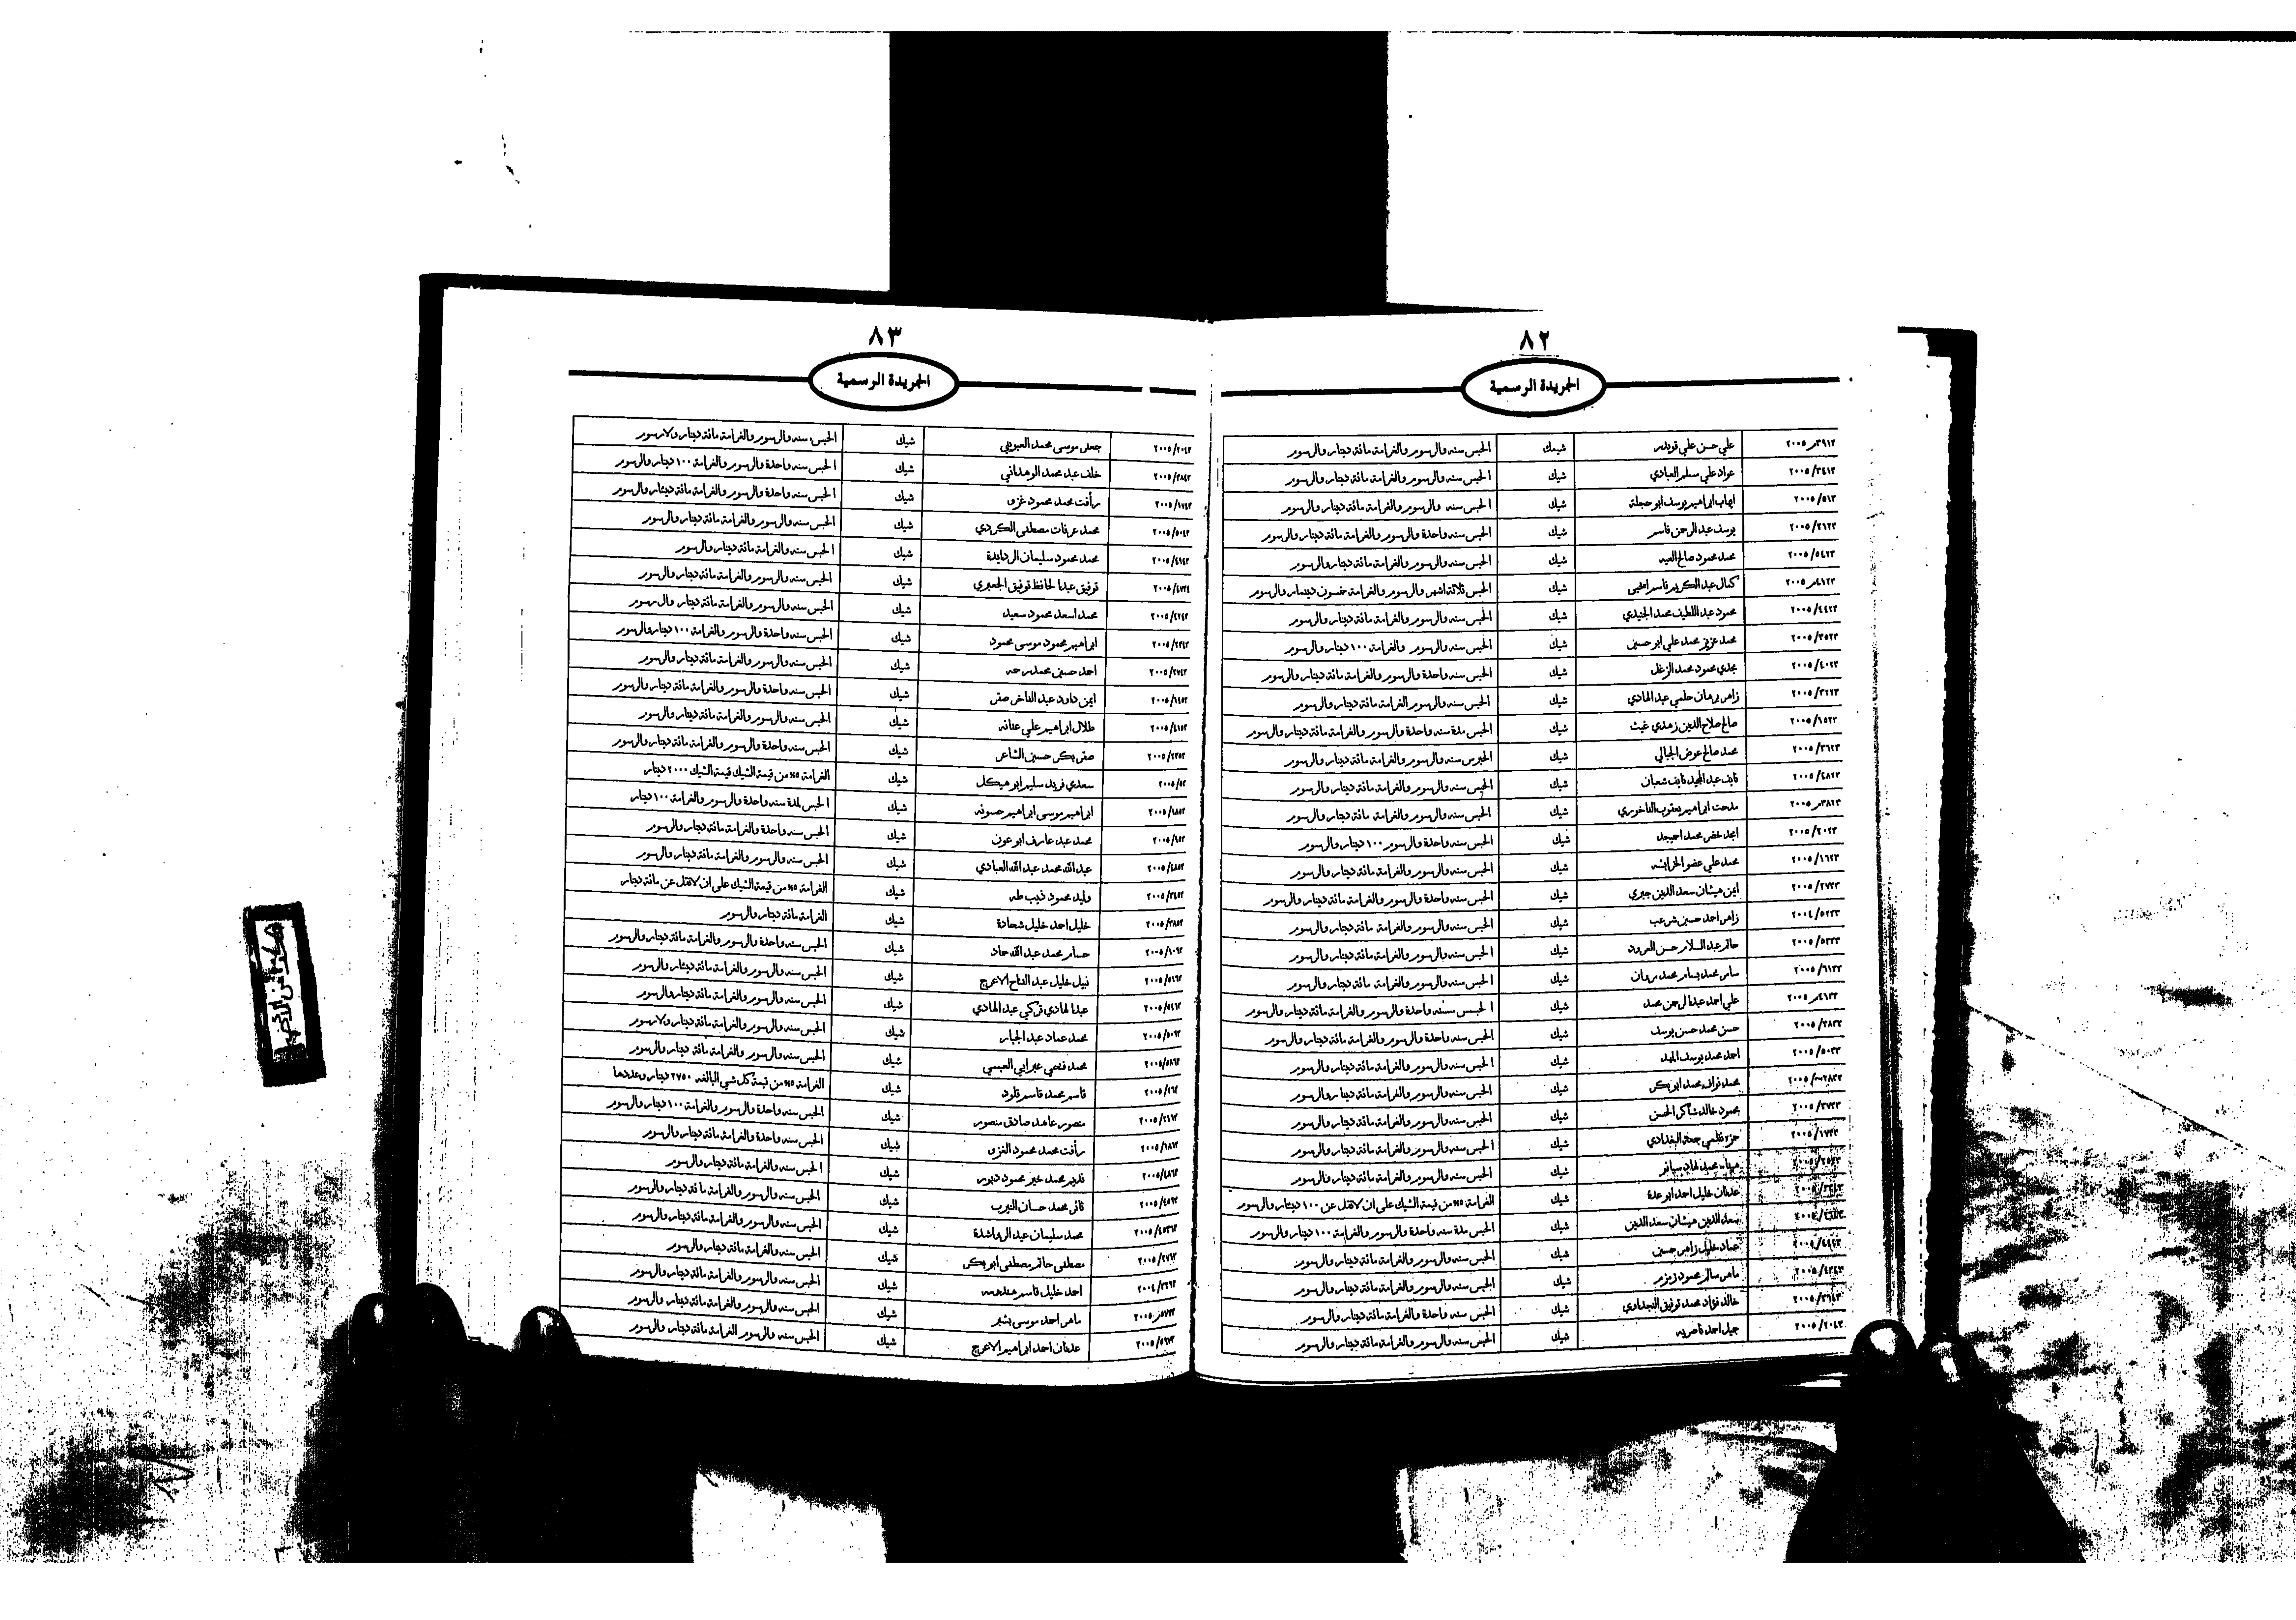 ٨٢
الجريدة الرسمية
٣٩١٣م/٢٠٠٥ علي حسن علي قويدر شيك الحبس سنه والرسوم والغرامة مائة دينار والرسوم
٢٠٠٥/٣٤١٣ عواد علي سلم العبادي شيك الحبس سنه والرسوم والغرامة مائة دينار والرسوم
٢٠٠٥/٥١٣ ايهاب ابراهيم يوسف ابو حجلة شيك الحبس سنه والرسوم والغرامة مائة دينار والرسوم
٢٠٠٥/٢١٢٣ يوسف عبد الرحمن قاسم شيك الحبس سنه واحدة والرسوم والغرامة مائة دينار والرسوم
٢٠٠٥/٥٤٢٣ محمد محمود صالح شيك الحبس سنه والرسوم والغرامة مائة دينار والرسوم
كمال عبد الكريم قاسم شيك الحبس ثلاثة اشهر والرسوم والغرامة خمسون دينار والرسوم
٢٠٠٥/٤٤٢٣ محمود عبد اللطيف محمد الجنيدي شيك الحبس سنه والرسوم والغرامة مائة دينار والرسوم
٢٠٠٥/٣٥٢٣ محمد عزيز محمد علي ابو حسين شيك الحبس سنه والرسوم والغرامة ١٠٠ دينار والرسوم
٢٠٠٥/٤٠٢٣ مجدي محمود محمد الزغل شيك الحبس سنه واحدة والرسوم والغرامة مائة دينار والرسوم
٢٠٠٥/٣٢٢٣ زاهر برهان حلمي عبد الهادي شيك الحبس سنه والرسوم الغرامة مائة دينار والرسوم
٢٠٠٥/١٥٢٣ صالح صلاح الدين زهدي غيث شيك الحبس مدة سنه واحدة والرسوم والغرامة مائة دينار والرسوم
٢٠٠٥/٣٦٢٣ محمد صالح عوض الجبالي شيك الحبس سنه والرسوم والغرامة مائة دينار والرسوم
٢٠٠٥/٤٨٢٣ نايف عبد المجيد نايف شعبان شيك الحبس سنه والرسوم والغرامة مائة دينار والرسوم
مدحت ابراهيم يعقوب الفاخوري شيك الحبس سنه والرسوم والغرامة مائة دينار والرسوم
٢٠٠٥/٢٠٢٣ امجد خضر محمد شيك الحبس سنه واحدة والرسوم ١٠٠ دينار والرسوم
٢٠٠٥/١٦٢٣ محمد علي عضو الخرابشه شيك الحبس سنه والرسوم والغرامة مائة دينار والرسوم
٢٠٠٥/٢٧٣٣ ايمن ميشان سعد الدين جبري شيك الحبس سنه واحدة والرسوم والغرامة مائة دينار والرسوم
٢٠٠٤/٥٢٣٣ زاهر احمد حسين شرعب شيك الحبس سنه والرسوم والغرامة مائة دينار والرسوم
٢٠٠٥/٥٣٣٣ حاتم عبد السلام حسن العرود شيك الحبس سنه والرسوم والغرامة مائة دينار والرسوم
٢٠٠٥/٦١٣٣ سامر محمد بسام محمد مروان شيك الحبس سنه والرسوم والغرامة مائة دينار والرسوم
علي احمد عبد الرحمن محمد شيك الحبس سنه واحدة والرسوم والغرامة مائة دينار والرسوم
٢٠٠٥/٣٨٣٣ حسن محمد حسن يوسف شيك الحبس سنه واحدة والرسوم والغرامة مائة دينار والرسوم
٢٠٠٥/٥٠٣٣ احمد محمد يوسف شيك الحبس سنه والرسوم والغرامة مائة دينار والرسوم
محمد نواف محمد ابو بكر شيك الحبس سنه والرسوم والغرامة مائة دينار والرسوم
٢٠٠٥/٣٧٣٣ محمود خالد شاكر الحسن شيك الحبس سنه والرسوم والغرامة مائة دينار والرسوم
٢٠٠٥/١٧٣٣ حمزه حلمي جمعة البغدادي شيك الحبس سنه والرسوم والغرامة مائة دينار والرسوم
شيك الحبس سنه والرسوم والغرامة مائة دينار والرسوم
عدنان خليل احمد ابو عدة شيك الغرامة ٥% من قيمة الشيك على ان لا تقل عن ١٠٠ دينار والرسوم
سعد الدين ميشان سعد الدين شيك الحبس مدة سنه واحدة والرسوم والغرامة ١٠٠ دينار والرسوم
عماد خليل زاهر حسين شيك الحبس سنه والرسوم والغرامة مائة دينار والرسوم
ماهر سالم محمود شيك الحبس سنه والرسوم والغرامة مائة دينار والرسوم
خالد فؤاد محمد توفيق البجداوي شيك الحبس سنه واحدة والغرامة مائة دينار والرسوم
٢٠٠٥/٢٠٤٣ جميل احمد ناصريه شيك الحبس سنه والرسوم والغرامة مائة دينار والرسوم
٨٣
الجريدة الرسمية
٢٠٠٥/٢٠٤٣ جعد موسى محمد العبويني شيك الحبس سنه والرسوم والغرامة مائة دينار ولارسوم
٢٠٠٥/٣٨٤٣ خلف عبد محمد الوهداني شيك الحبس سنه واحدة والرسوم والغرامة ١٠٠ دينار والرسوم
٢٠٠٥/١٧٤٣ رأفت محمد محمود غزو شيك الحبس سنه واحدة والرسوم والغرامة مائة دينار والرسوم
٢٠٠٥/٥٠٤٣ محمد عرفات مصطفى الكردي شيك الحبس سنه والرسوم والغرامة مائة دينار والرسوم
٢٠٠٥/٤٩٤٣ محمد محمود سليمان الردايدة شيك الحبس سنه والغرامة مائة دينار والرسوم
توفيق عبد الحافظ توفيق الجعبري شيك الحبس سنه والرسوم والغرامة مائة دينار والرسوم
٢٠٠٥/٤٢٤٣ محمد اسعد محمود سعيد شيك الحبس سنه والرسوم والغرامة مائة دينار والرسوم
٢٠٠٥/٢٣٤٣ ابراهيم محمود موسى محمود شيك الحبس سنه واحدة والرسوم والغرامة ١٠٠ دينار والرسوم
٢٠٠٥/٢٧٤٣ احمد حسين محمد رحمه شيك الحبس سنه والرسوم والغرامة مائة دينار والرسوم
٢٠٠٥/١٤٥٣ ايمن داود عبد الفاخر صقر شيك الحبس سنه واحدة والرسوم والغرامة مائة دينار والرسوم
٢٠٠٥/٤١٥٣ طلال ابراهيم علي عنانه شيك الحبس سنه والرسوم والغرامة مائة دينار والرسوم
٢٠٠٥/٢٣٥٣ صقر بكر حسين الشاعر شيك الحبس سنه واحدة والرسوم والغرامة مائة دينار والرسوم
٢٠٠٥/٥٣ سعدي فريد سليم ابو هيكل شيك الغرامة ٥% من قيمة الشيك قيمة الشيك ٢٠٠٠ دينار
٢٠٠٥/١٨٥٣ ابراهيم موسى ابراهيم حسونه شيك الحبس لمدة سنه واحدة والرسوم والغرامة ١٠٠ دينار
٢٠٠٥/٤٥٣ محمد عبد عارف ابو عون شيك الحبس سنه واحدة والغرامة مائة دينار والرسوم
٢٠٠٥/٤٨٥٣ عبد الله محمد عبد الله العبادي شيك الحبس سنه والرسوم والغرامة مائة دينار والرسوم
٢٠٠٥/٣٤٥٣ وليد محمود ذيب طه شيك الغرامة ٥% من قيمة الشيك على ان لا تقل عن مائة دينار
٢٠٠٥/٣٨٥٣ خليل احمد خليل شحادة شيك الغرامة مائة دينار والرسوم
٢٠٠٥/١٠٦٣ حسام محمد عبد الله حماد شيك الحبس سنه واحدة والرسوم والغرامة مائة دينار والرسوم
٢٠٠٥/٥١٦٣ نبيل خليل عبد الفتاح الاعرج شيك الحبس سنه والرسوم والغرامة مائة دينار والرسوم
٢٠٠٥/٥٤٦٣ عبد الهادي تركي عبد الهادي شيك الحبس سنه والرسوم والغرامة مائة دينار والرسوم
٢٠٠٥/٥٠٦٣ محمد عماد عبد الجبار شيك الحبس سنه والرسوم والغرامة مائة دينار ولارسوم
٢٠٠٥/٥٨٦٣ محمد فتحي العبسي شيك الحبس سنه والرسوم والغرامة مائة دينار والرسوم
٢٠٠٥/٢٦٣ قاسم محمد قاسم قلود شيك الغرامة ٥% من قيمة كل شيك البالغه ٢٧٥٠ دينار وعددها
٢٠٠٥/٤١٦٣ منصور عاهد صادق منصور شيك الحبس سنه واحدة والرسوم والغرامة ١٠٠ دينار والرسوم
٢٠٠٥/١٨٦٣ رأفت محمد محمود الغزو شيك الحبس سنه واحدة والغرامة مائة دينار والرسوم
٢٠٠٥/٤٨٦٣ نديم محمد خير محمود شيك الحبس سنه والغرامة مائة دينار والرسوم
٢٠٠٥/٤٥٦٣ محمد حسان شيك الحبس سنه والرسوم والغرامة مائة دينار والرسوم
محمد سليمان عبد الرواشدة شيك الحبس سنه والرسوم والغرامة مائة دينار والرسوم
٢٠٠٥/٢٧٦٣ مصطفى حاتم مصطفى ابو بكر شيك الحبس سنه والغرامة مائة دينار والرسوم
٢٠٠٤/٣٢٦٣ احمد خليل قاسم شيك الحبس سنه والرسوم والغرامة مائة دينار والرسوم
ماهر احمد موسى بشير شيك الحبس سنه والرسوم والغرامة مائة دينار والرسوم
٢٠٠٥/٥٦٧٣ عدنان احمد ابراهيم الاعرج شيك الحبس سنه والرسوم الغرامة مائة دينار والرسوم